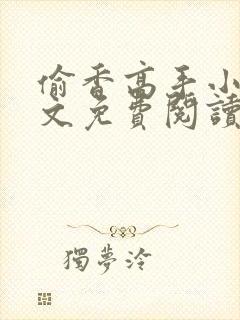 偷香高手小
文免費閱讀
獨夢泠